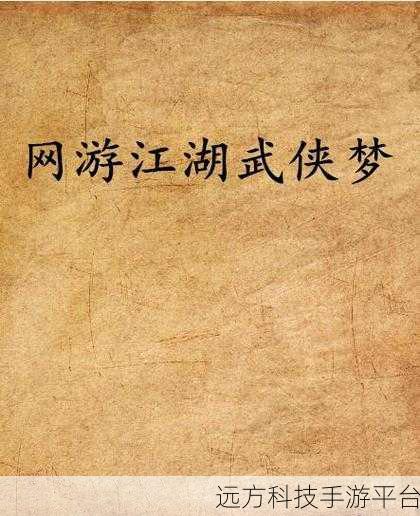 网游江湖武侠梦
远方科技手游平台